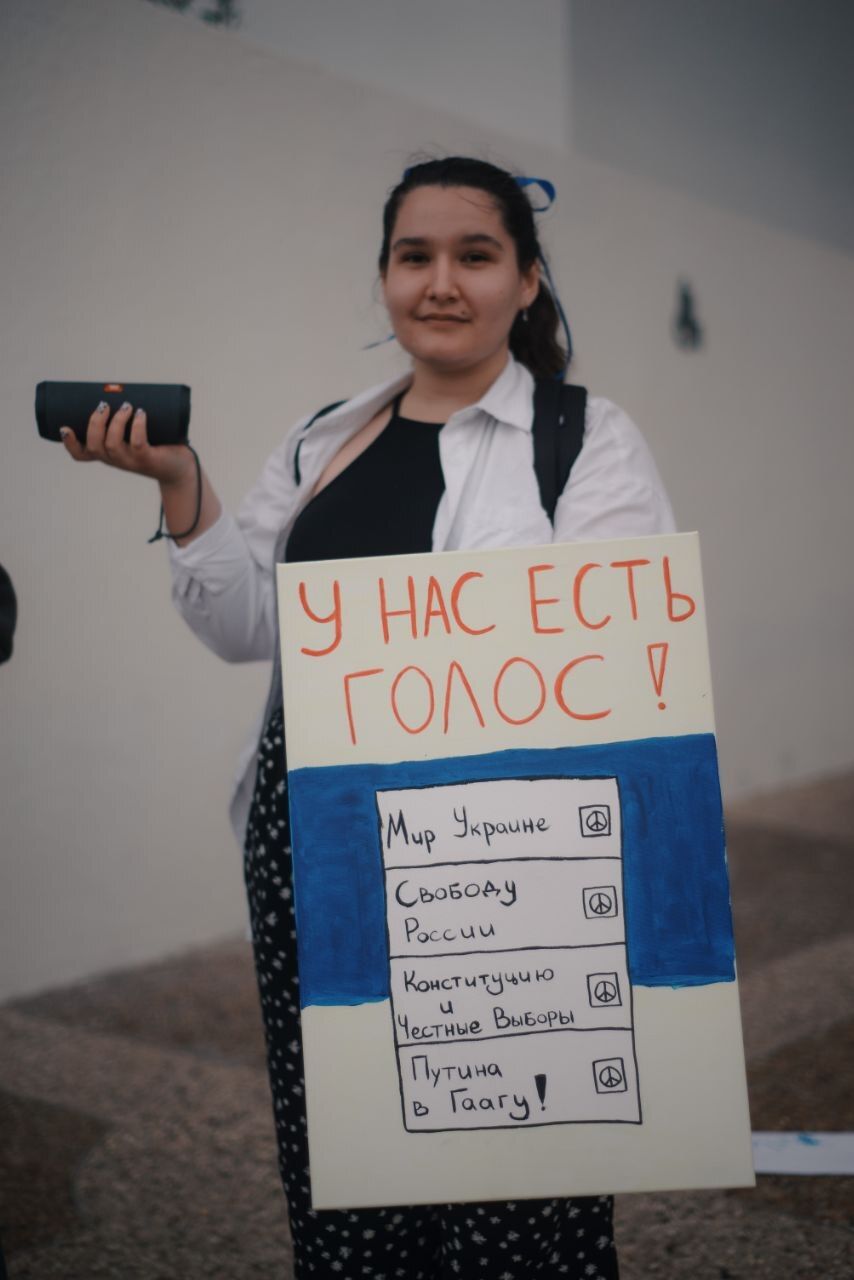 У НАС ЕСТЬ
ГОЛОС!
Мир Украине
Свободу
России
Конституцию
и
Честные Выборы
Путина
в Гаагу!